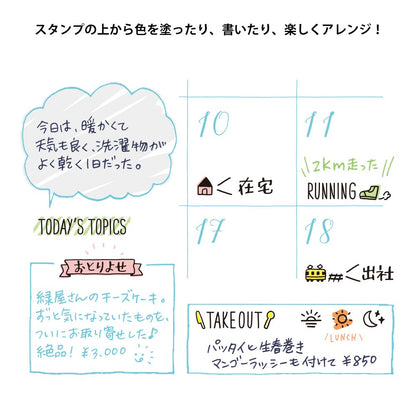 スタンプの上から色を塗ったり、書いたり、楽しくアレンジ！
今日は、暖かくて
天気も良く、洗濯物が
よく乾く1日だった。
TODAY'S TOPICS
10
在宅
11
2km走った
RUNNING
17
18
出社
おとりよせ
緑屋さんのチーズケーキ。
ずっと気になっていたものを、
ついにお取り寄せした♪
絶品！ ¥3,000
TAKEOUT
LUNCH
パッタイと生春巻き
マンゴーラッシーも付けて ¥850